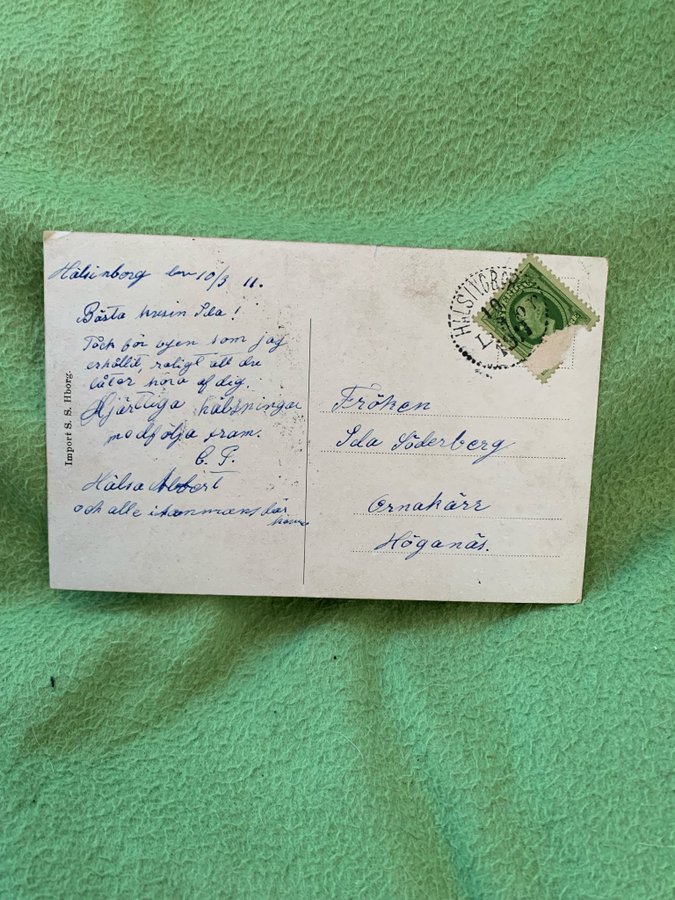 Hälsinborg den 10/3 11.
Bästa kusin Ida!
Tack för vyen som jag
erhållit, roligt att du
låter höra af dig.
Hjärtliga hälsningar
medfölja fram.
Hälsa Albert
och alla
Import S. S. Hborg.
HÄLSINGBORG
Fröken
Ida Söderberg
Ornakärr
Höganäs.